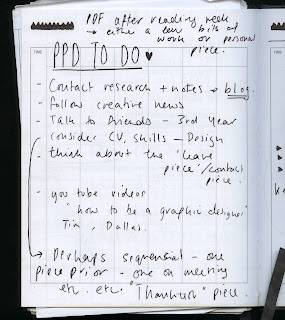 PDF after reading week
→ either a few bits of
work or personal
piece.
TIME
PPD TO DO ♥
TIME
- Contact research + notes → blog.
- Follow creative news
- Talk to friends - 3rd Year
consider CV, skills - Design
- think about the 'leave
piece'/contact
piece.
- you tube videos
"how to be a graphic designer"
Tim, Dallas.
→ Perhaps sequential - one
piece prior - one on meeting
etc. etc. "Thankyou" piece.